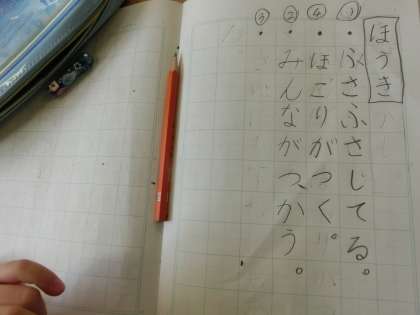 ほうき
①・ふさふさじてる。
④・ほごりがつく。
②・みんながつかう。
③・